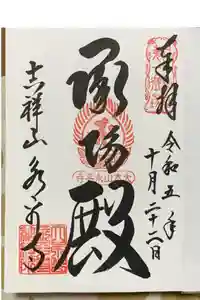 奉拝
令和五年
十月二十二日
承陽殿
吉祥山永平寺